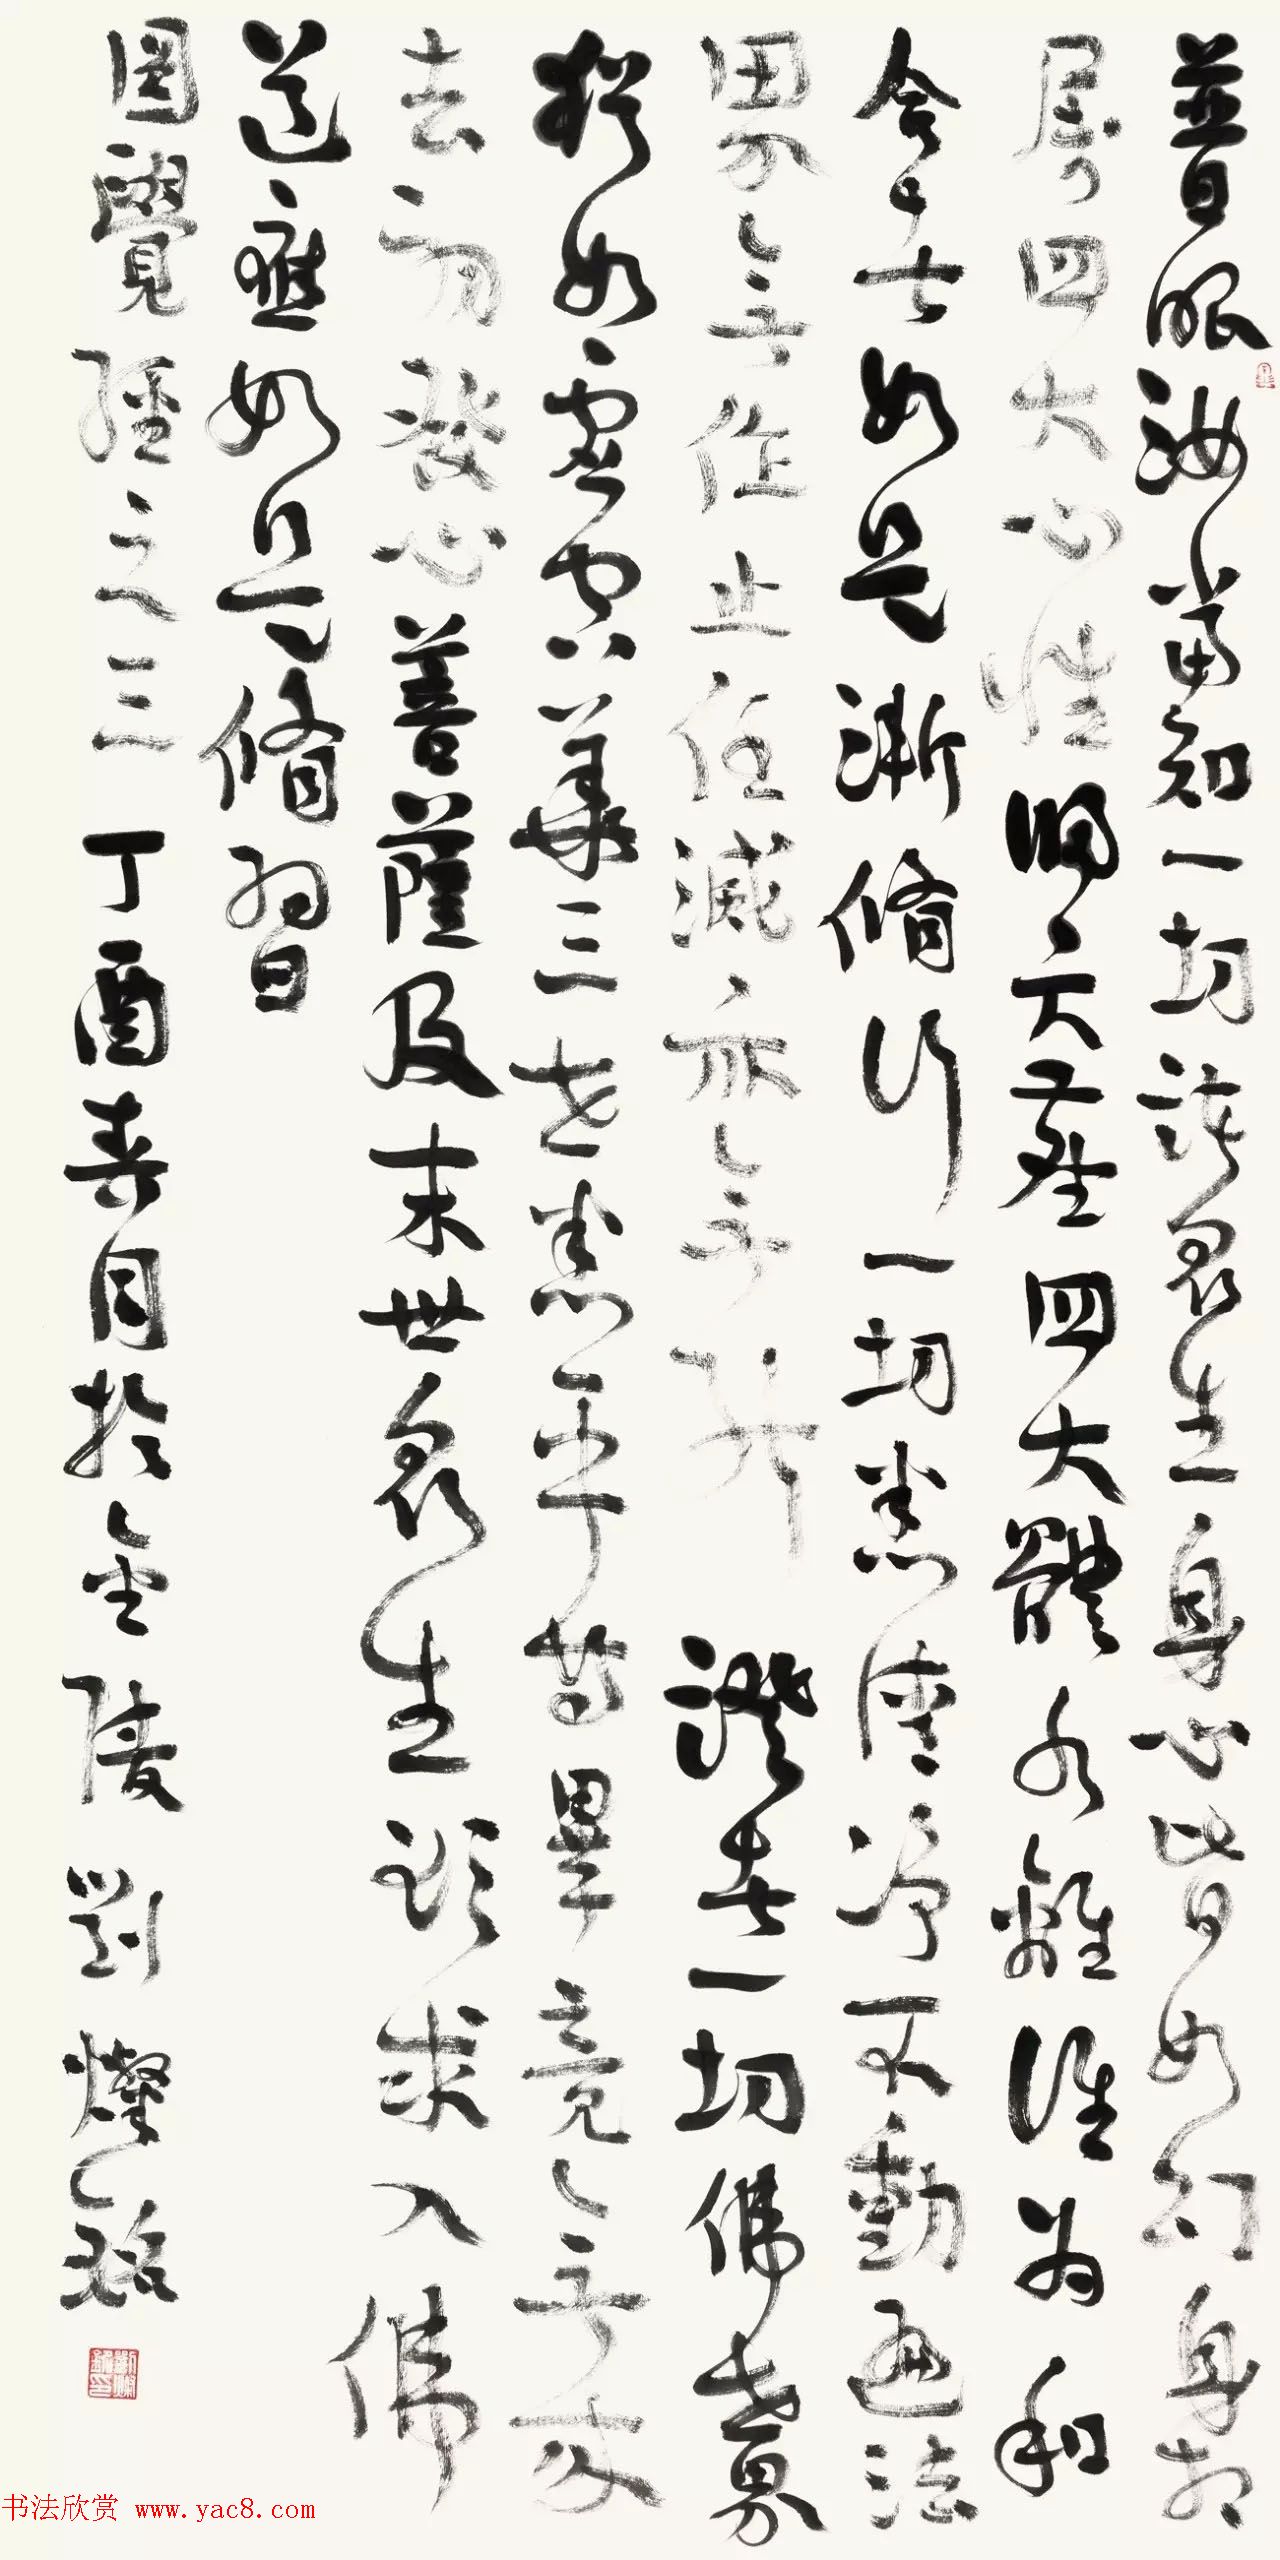 普眼汝當知一切諸眾生身心皆如幻身相
屬四大心性歸六塵四大體各離誰為和
合者如是漸脩行一切悉清淨不動遍法
界無作止任滅亦無能證者一切佛世界
猶如虛空華三世悉平等畢竟無來
去初發心菩薩及末世眾生欲求入佛
道應如是脩習
圓覺經之三 丁酉春月於金陵 劉燦銘
书法欣赏 www.yac8.com